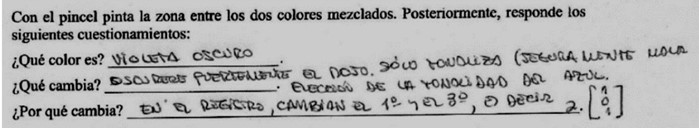 Con el pincel pinta la zona entre los dos colores mezclados. Posteriormente, responde los
siguientes cuestionamientos:
¿Qué color es? VIOLETA OSCURO.
¿Qué cambia? FUERTEMENTE EL ROJO. SÓLO (SEGURAMENTE MALA
ELECCIÓN DE LA TONALIDAD DEL AZUL.
¿Por qué cambia? EN EL REGISTRO, CAMBIAN EL 1º Y EL 3º, ES DECIR 2. [1 0 1]